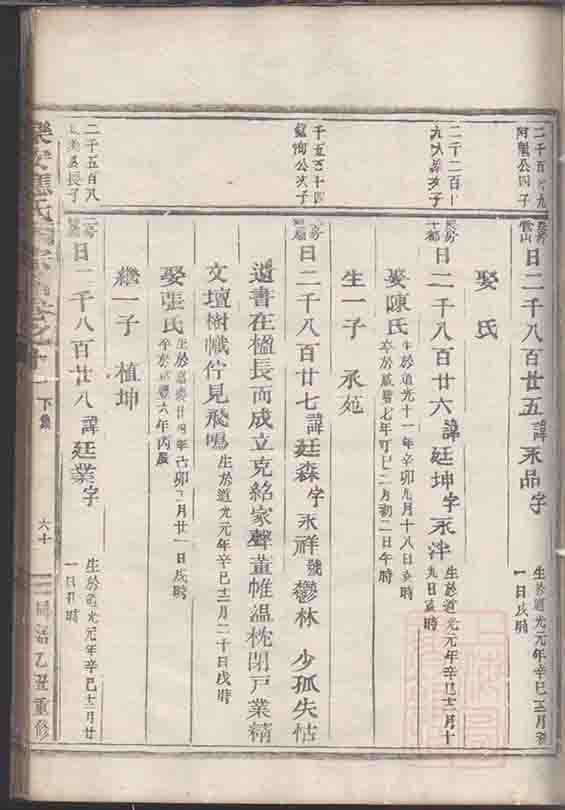 二千百十九
阿星公四子
日二千八百廿五諱永品字
生於道光元年辛巳五月初
一日戌時
娶 氏
二千二百
日二千八百廿六諱廷坤字永泮
生於道光元年辛巳十二月十
九日亥時
娶陳氏
生於道光十一年辛卯九月十八日亥時
卒於咸豐七年丁巳二月初二日午時
生一子 承苑
千五百十四
公次子
日二千八百廿七諱廷森字永祥號鬱林 少孤失怙
遺書在楹長而成立克紹家聲董帷溫枕閉戶業精
文壇樹幟佇見飛鳴
生於道光元年辛巳十二月二十日戌時
娶張氏
月廿一日戌時
六年丙辰
繼一子 植坤
二千五百八
長子
日二千八百廿八諱廷業字
生於道光元年辛巳十二月廿
一日
卷之十
下集
六十
同治乙丑重修